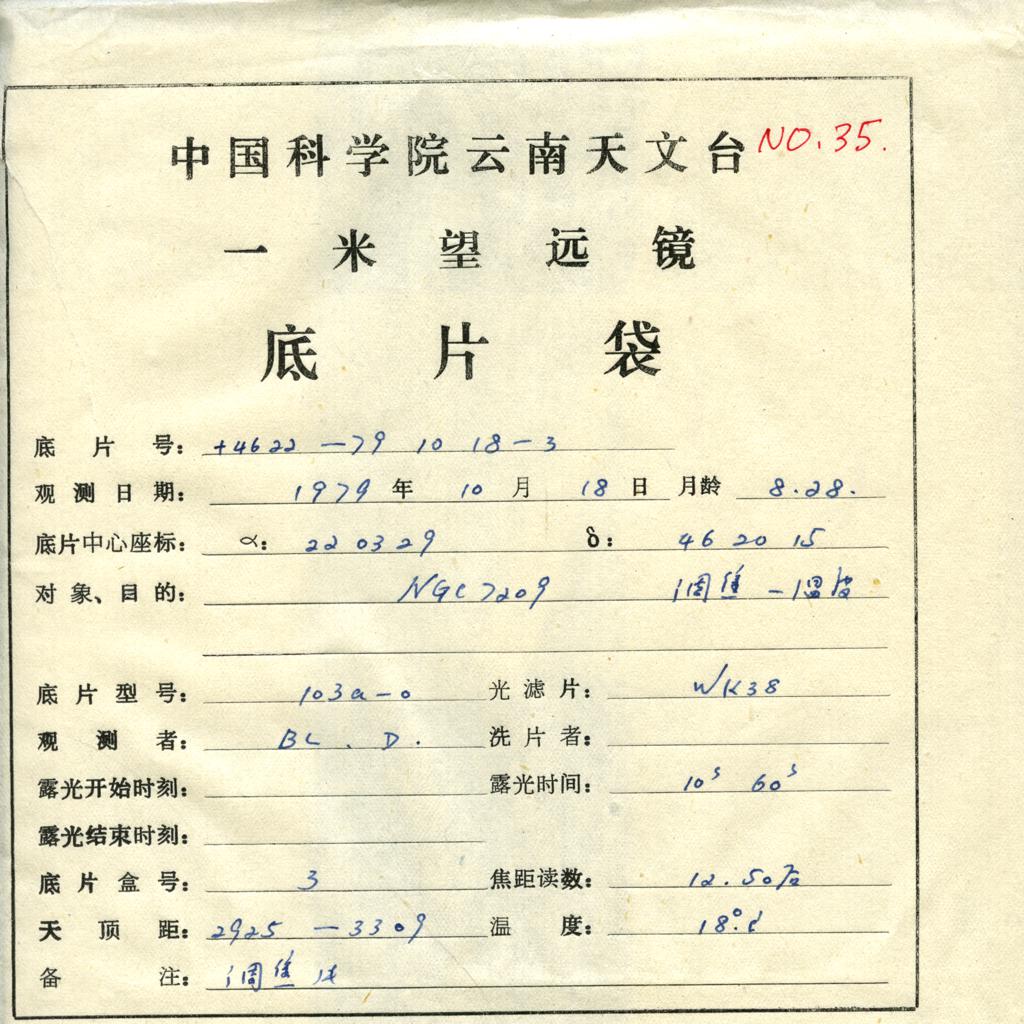 中国科学院云南天文台 NO.35.
一米望远镜
底片袋
底片号: +4622-79 10 18-3
观测日期: 1979年 10月 18日 月龄 8.28.
底片中心座标: α: 22 03 29 δ: 46 20 15
对象、目的: NGC7209 调焦-温度
底片型号: 103a-o 光滤片: WK38
观测者: BL. D. 洗片者:
露光开始时刻: 露光时间: 10ˢ 60ˢ
露光结束时刻:
底片盒号: 3 焦距读数: 12.50
天顶距: 2925-3309 温度:
备注: 调焦片